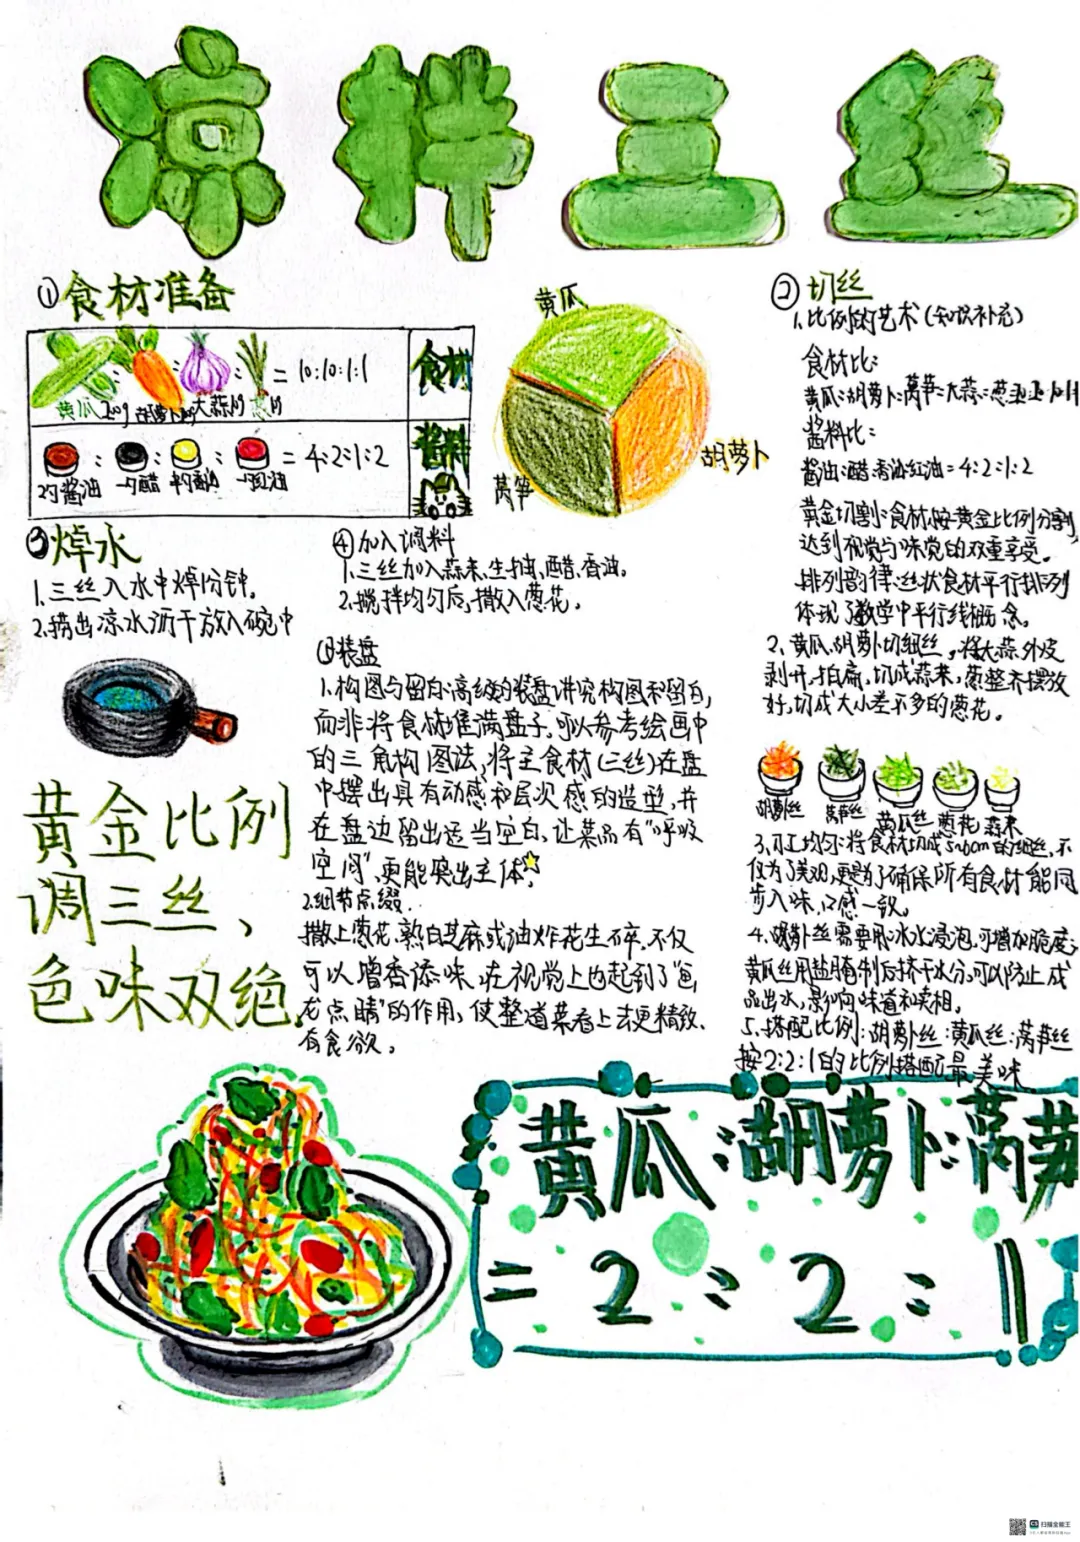 凉拌三丝
①食材准备
黄瓜 : 胡萝卜 : 大蒜 : 葱 = 10:10:1:1
食材
: : : = 4:2:1:2
酱料
2勺酱油 一勺醋 半勺香油 一勺红油
黄瓜
胡萝卜
莴笋
②切丝
1.比例的艺术(知识补充)
食材比:
黄瓜:胡萝卜:莴笋:大蒜:葱
酱料比:
酱油:醋:香油:红油=4:2:1:2
黄金切割:食材按黄金比例分割,
达到视觉与味觉的双重享受。
排列韵律:丝状食材平行排列
体现了数学中平行线概念。
2、黄瓜、胡萝卜切细丝,将大蒜外皮
剥开,拍扁,切成蒜末,葱整齐摆放
好,切成大小差不多的葱花。
胡萝卜丝 莴笋丝 黄瓜丝 葱花 蒜末
3、刀工均匀:将食材切成5~6cm的细丝,不
仅为了美观,更是为了确保所有食材能同
步入味,口感一致。
4、胡萝卜丝需要用冰水浸泡,可增加脆度;
黄瓜丝用盐腌制后挤干水分,可以防止成
品出水,影响味道和卖相。
5、搭配比例:胡萝卜丝:黄瓜丝:莴笋丝
按2:2:1的比例搭配最美味
③焯水
1.三丝入水中焯1分钟。
2.捞出凉水沥干放入碗中
④加入调料
1.三丝加入蒜末、生抽、醋、香油。
2.搅拌均匀后,撒入葱花。
装盘
1.构图与留白:高级的装盘讲究构图和留白,
而非将食材堆满盘子,可以参考绘画中
的三角构图法,将主食材(三丝)在盘
中摆出具有动感和层次感的造型,并
在盘边留出适当空白,让菜品有“呼吸
空间”,更能突出主体。
2.细节点缀.
撒上葱花、熟白芝麻或油炸花生碎,不仅
可以增香添味,在视觉上也起到了“画
龙点睛”的作用,使整道菜看上去更精致、
有食欲。
黄金比例
调三丝、
色味双绝
黄瓜:胡萝卜:莴笋
=2:2:1
扫描全能王